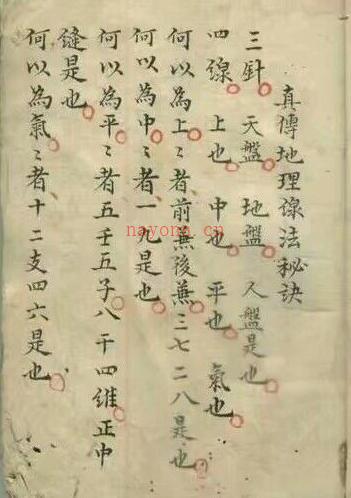 真傳地理線法秘訣
三針 天盤 地盤 人盤是也
四線 上也 中也 平也 氣也
何以為上〻者前無後兼三七二八是也
何以為中〻者一九是也
何以為平〻者五壬五子八干四維正中
縫是也
何以為氣〻者十二支四六是也
nayong.cn